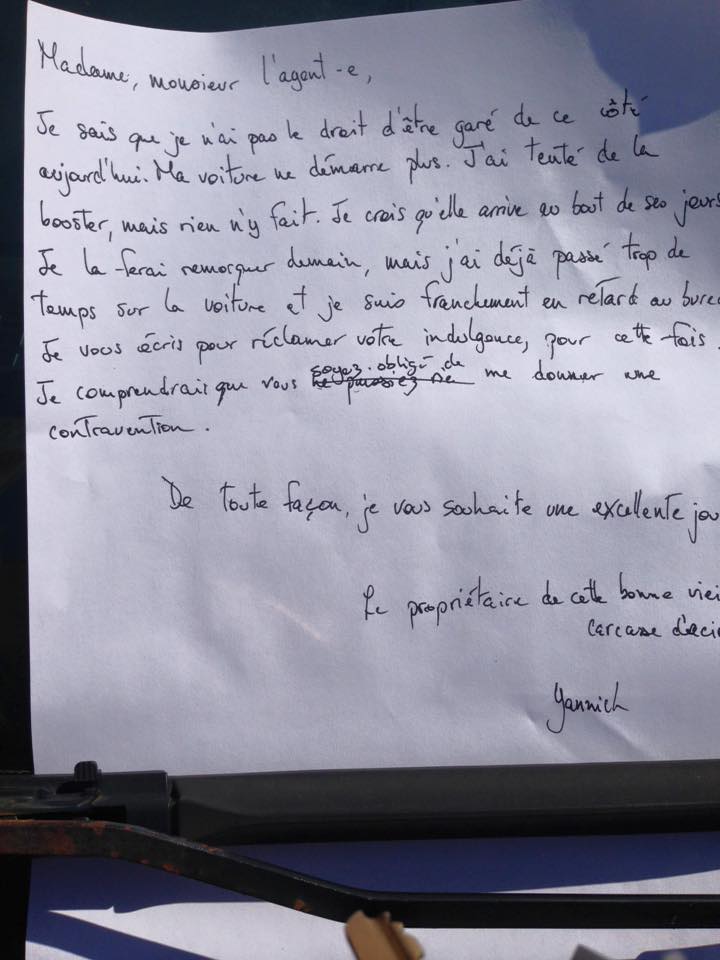 Madame, monsieur l'agent-e,
Je sais que je n'ai pas le droit d'être garé de ce côté
aujourd'hui. Ma voiture ne démarre plus. J'ai tenté de la
booster, mais rien n'y fait. Je crois qu'elle arrive au bout de ses jours
Je la ferai remorquer demain, mais j'ai déjà passé trop de
temps sur la voiture et je suis franchement en retard au burea
Je vous écris pour réclamer votre indulgence, pour cette fois.
soyez obligé de
Je comprendrais que vous ne puissiez me donner une
contravention.
De toute façon, je vous souhaite une excellente jou
Le propriétaire de cette bonne viei
carcasse d'acie
Yannick